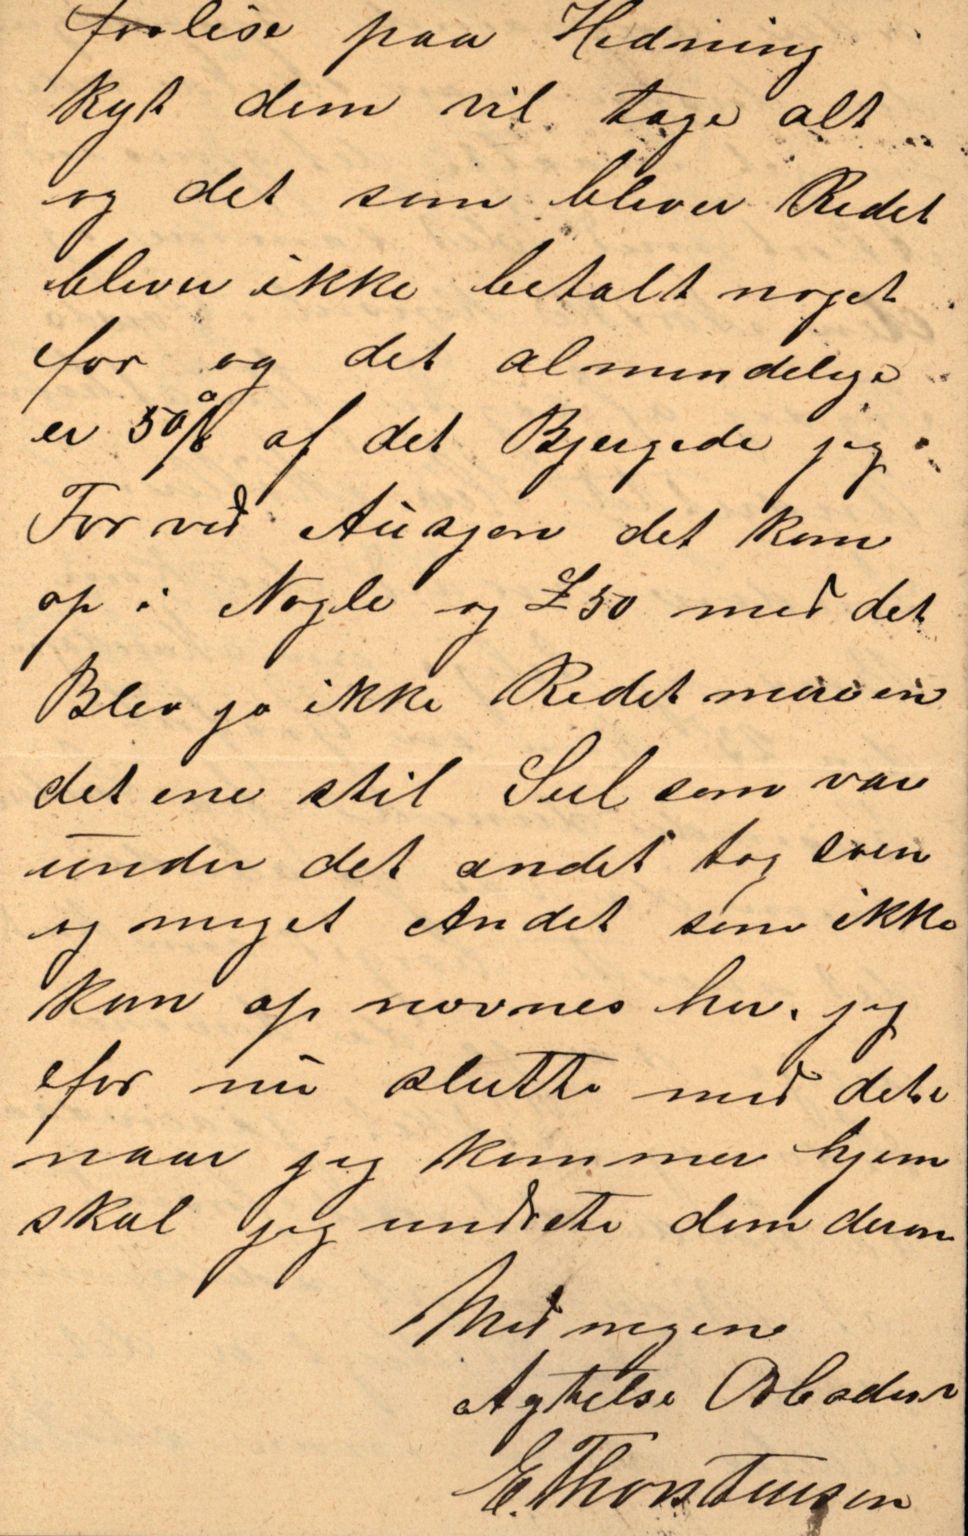 forlise paa Hedning
kyst dem vil tage alt
og det som bliver Redet
bliver ikke betalt noget
for og det almindelige
er 50% af det Bjergede jeg
For ved Ausjon det kom
op i Nogle og £50 med det
Blev jo ikke Redet mere en
det ene stil Seil som var
under det andet tog soen
og meget Andet som ikke
kan op nævnes her. jeg
for nu slutte med dete
naar jeg kommer hjem
skal jeg undrete dem derom
Med megen
Agtelse
E. Thorstensen